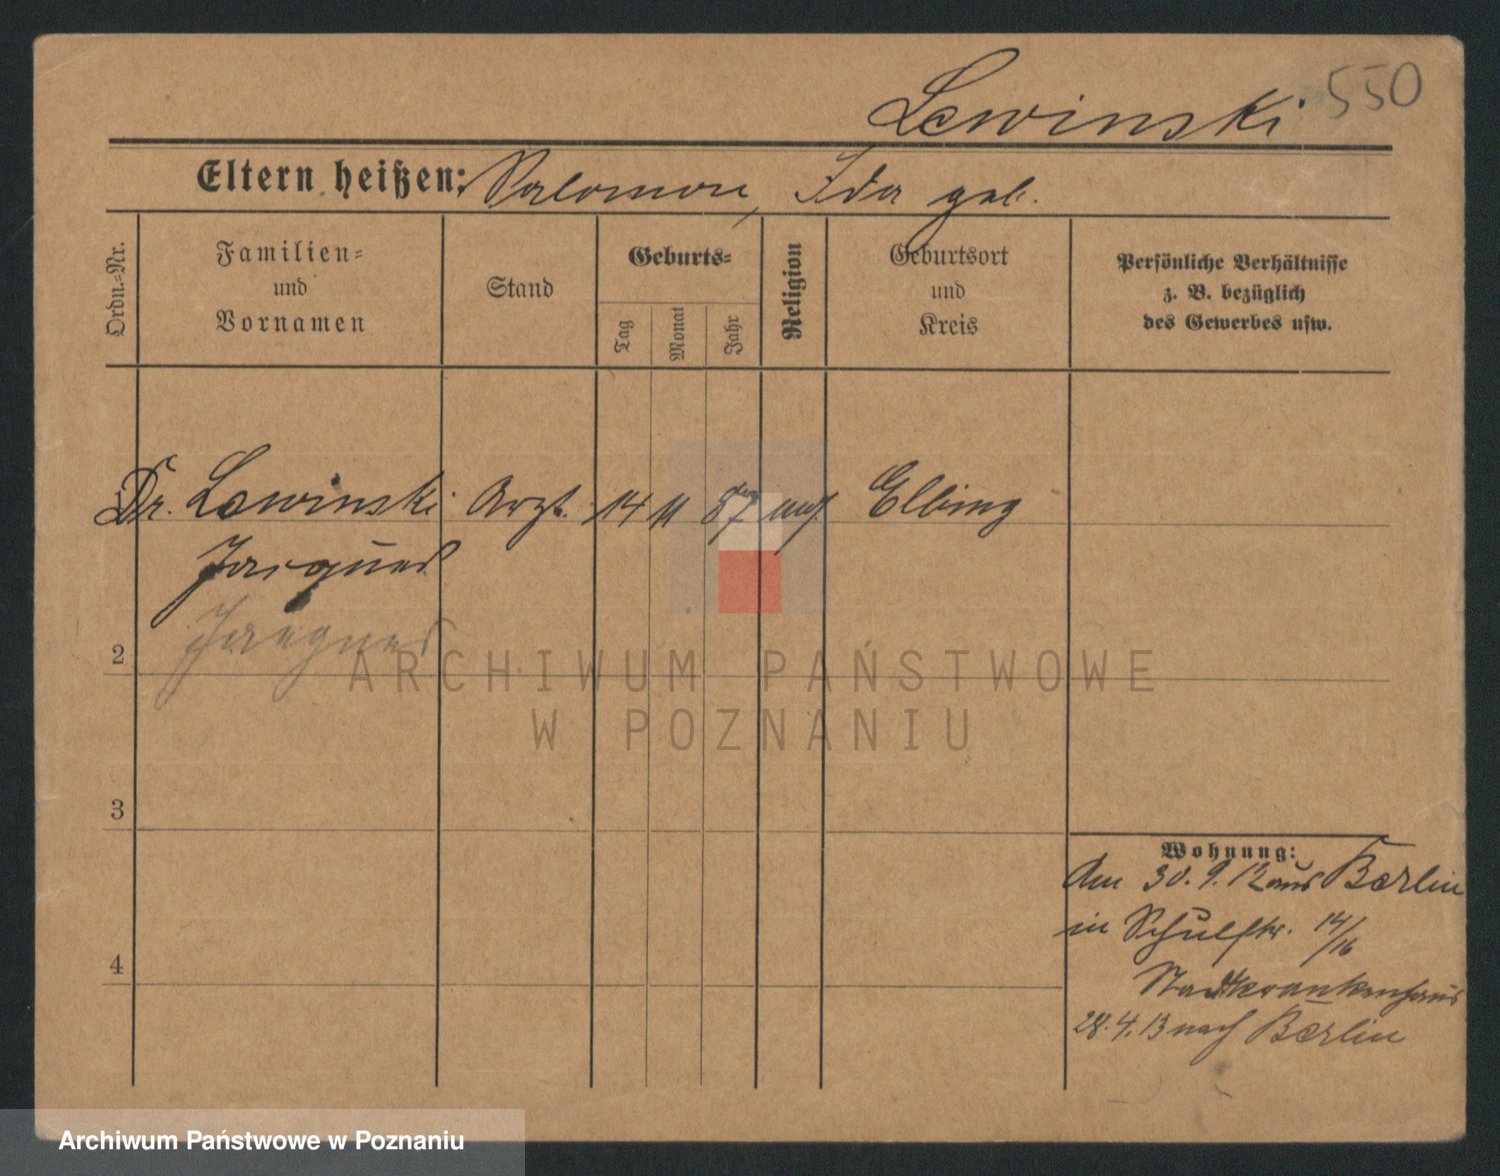 550
Lewinski
Eltern heißen: Salomon, Ida geb.
Ordn.-Nr.
Familien-
und
Vornamen
Stand
Geburts-
Tag
Monat
Jahr
Religion
Geburtsort
und
Kreis
Persönliche Verhältnisse
z. B. bezüglich
des Gewerbes usw.
Dr. Lewinski Arzt. 14 11 87 mos. Elbing
Jacques
Jacques
2
ARCHIWUM PAŃSTWOWE
W POZNANIU
3
Wohnung:
den 30.9.12 aus Berlin
in Schulstr. 14/16
4
Stadtkrankenhaus
28.4.13 nach Berlin
Archiwum Państwowe w Poznaniu